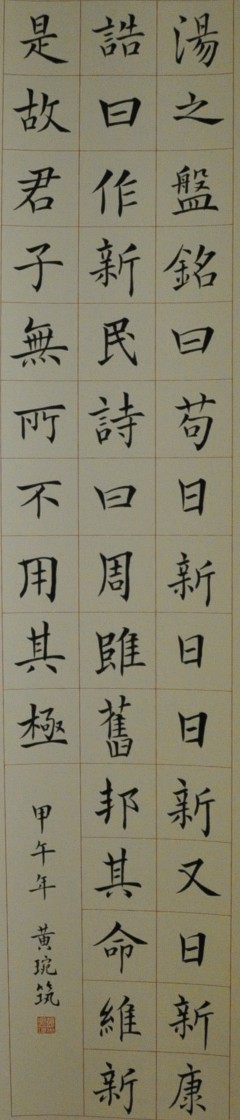 湯之盤銘曰苟日新日日新又日新康
誥曰作新民詩曰周雖舊邦其命維新
是故君子無所不用其極
甲午年 黃琬筑